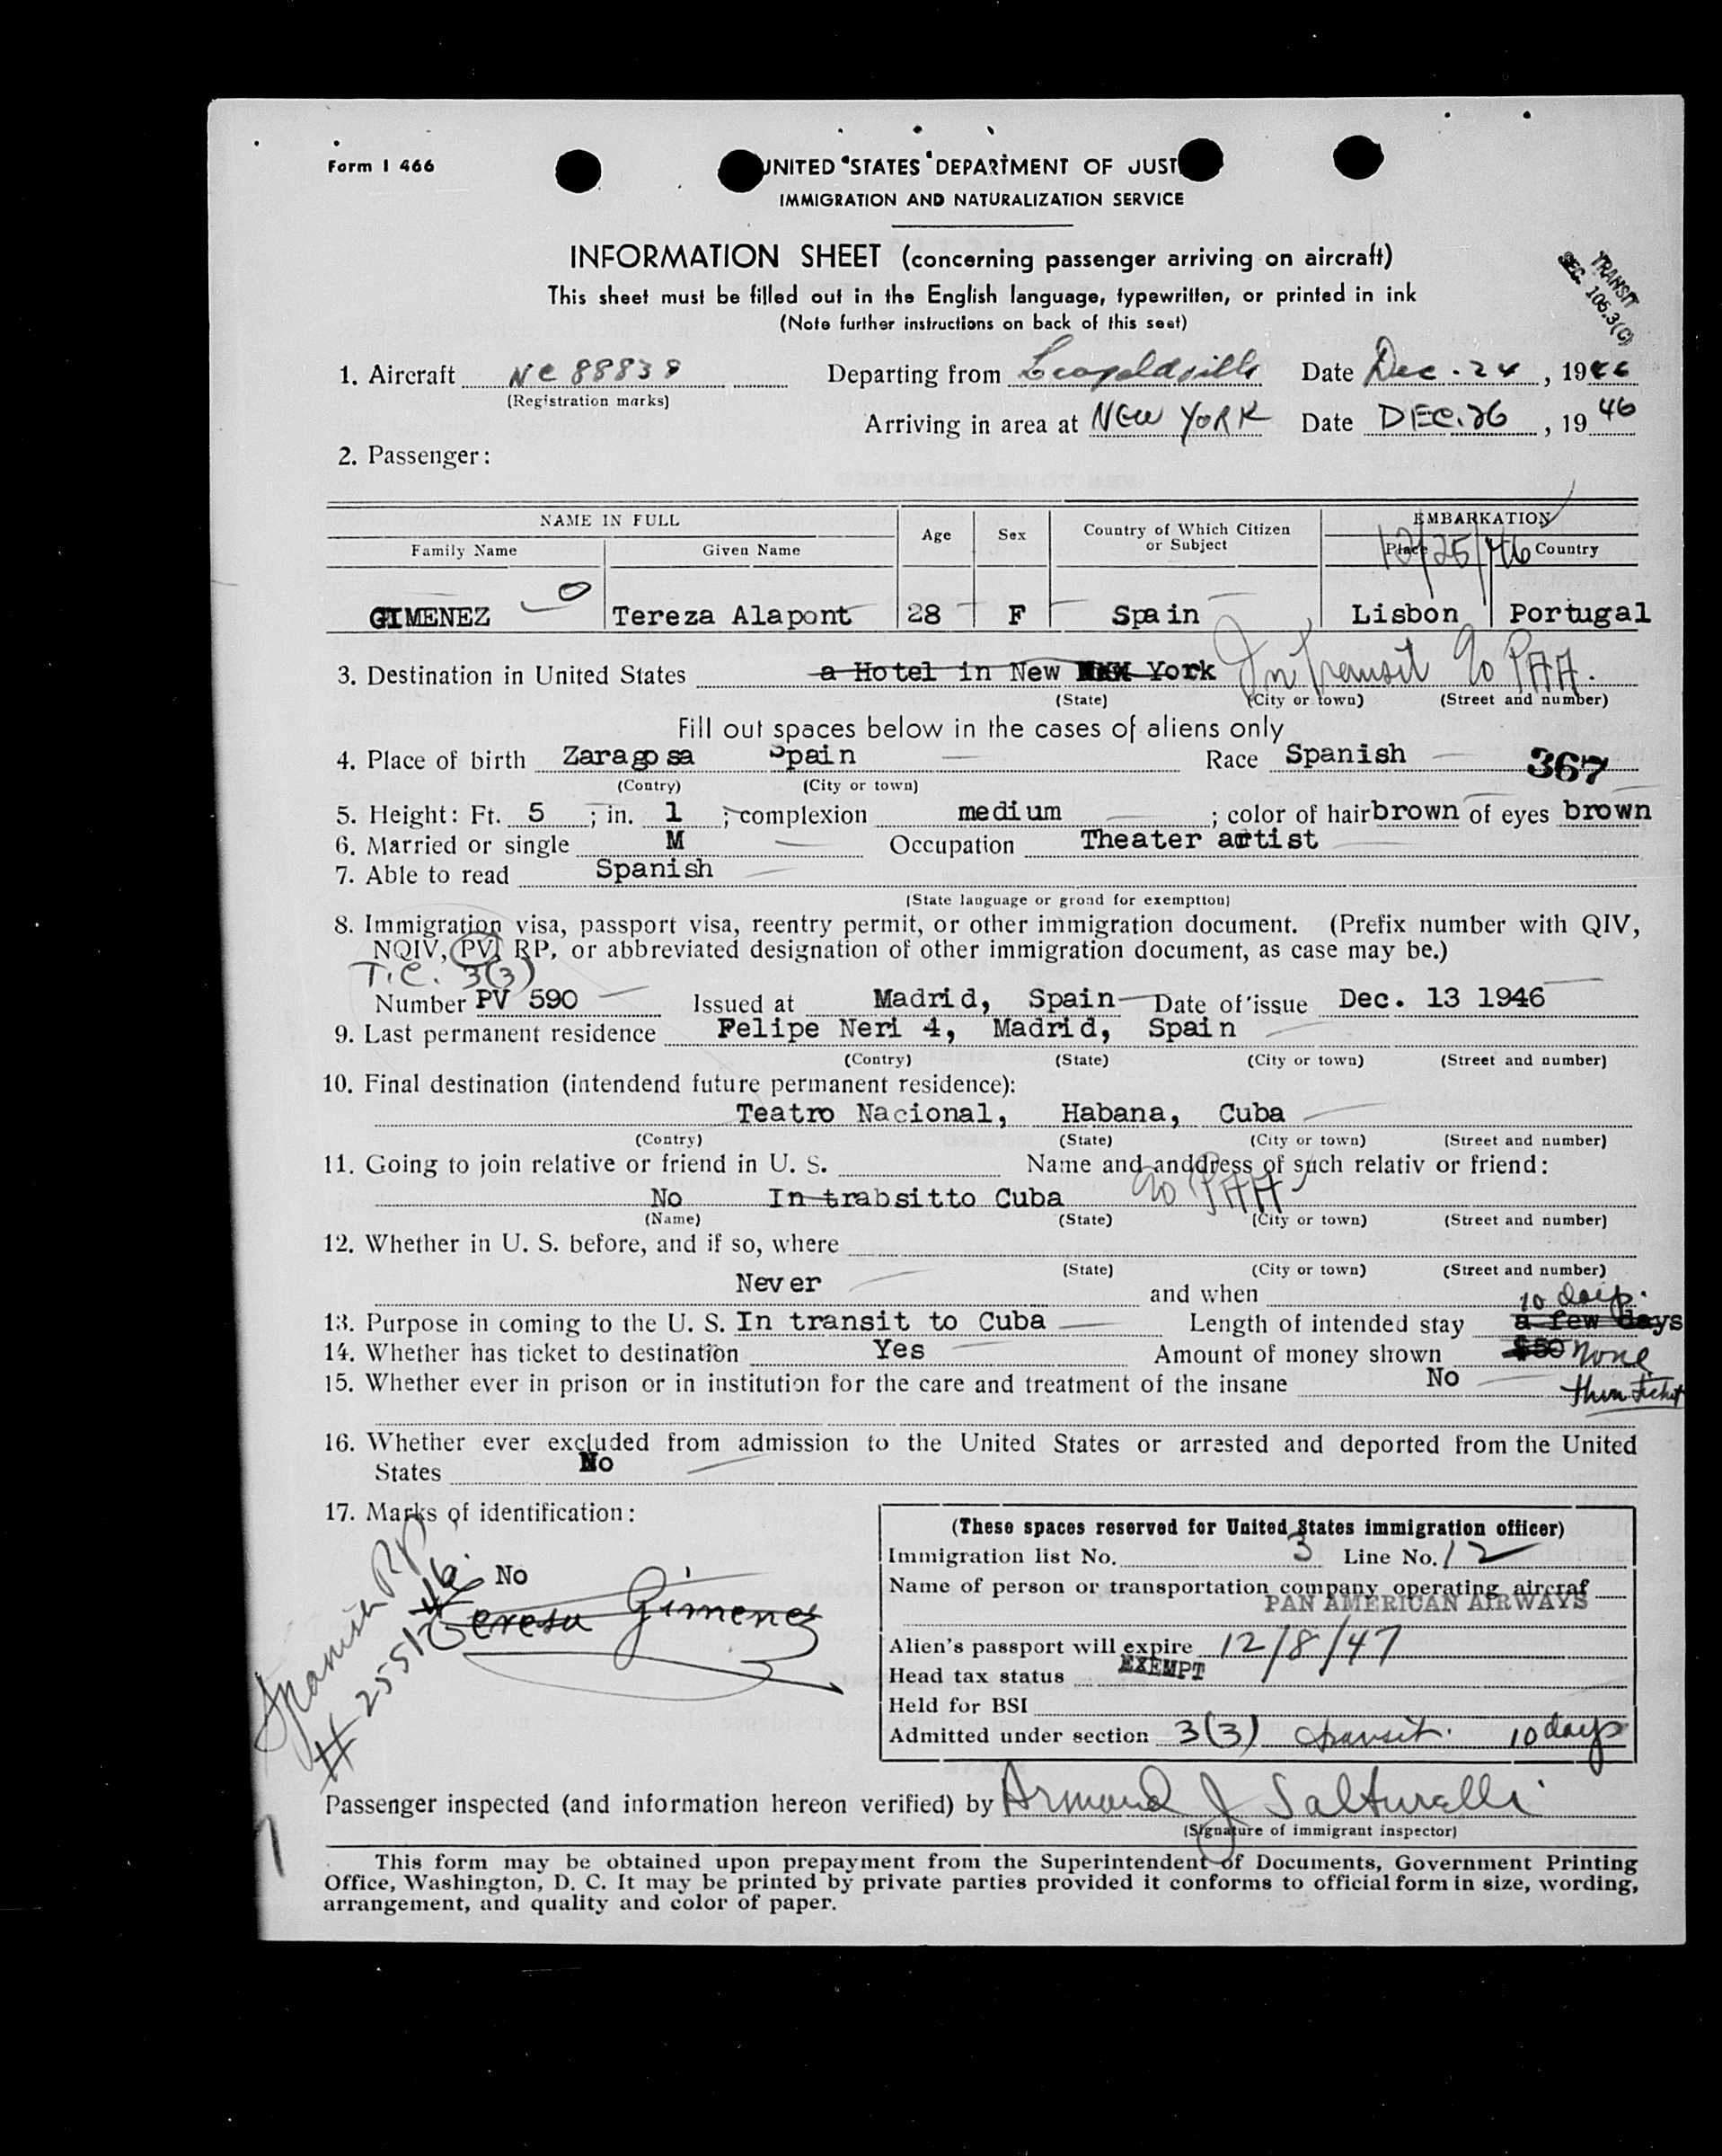 Form I 466
UNITED STATES DEPARTMENT OF JUST
IMMIGRATION AND NATURALIZATION SERVICE
INFORMATION SHEET (concerning passenger arriving on aircraft)
This sheet must be filled out in the English language, typewritten, or printed in ink
(Note further instructions on back of this seet)
TRANSIT
SEC. 105.3(C)
1. Aircraft NC 88838 Departing from Leopoldville Date Dec. 24, 1946
(Registration marks)
Arriving in area at NEW YORK Date DEC. 26, 1946
2. Passenger:
NAME IN FULL Age Sex Country of Which Citizen or Subject EMBARKATION
Family Name Given Name Place Country
12/25/46
GIMENEZ Tereza Alapont 28 F Spain Lisbon Portugal
3. Destination in United States a Hotel in New York In Transit c/o PAA.
(State) (City or town) (Street and number)
Fill out spaces below in the cases of aliens only
4. Place of birth Zaragosa Spain Race Spanish 367
(Contry) (City or town)
5. Height: Ft. 5; in. 1; complexion medium; color of hair brown of eyes brown
6. Married or single M Occupation Theater artist
7. Able to read Spanish
(State language or grond for exemptton)
8. Immigration visa, passport visa, reentry permit, or other immigration document. (Prefix number with QIV,
NQIV, PV, RP, or abbreviated designation of other immigration document, as case may be.)
T.C. 3(3)
Number PV 590 Issued at Madrid, Spain Date of issue Dec. 13 1946
9. Last permanent residence Felipe Neri 4, Madrid, Spain
(Contry) (State) (City or town) (Street and number)
10. Final destination (intendend future permanent residence):
Teatro Nacional, Habana, Cuba
(Contry) (State) (City or town) (Street and number)
11. Going to join relative or friend in U. S. Name and anddress of such relativ or friend:
No In trabsitto Cuba c/o PAA
(Name) (State) (City or town) (Street and number)
12. Whether in U. S. before, and if so, where
(State) (City or town) (Street and number)
Never and when
10 days.
13. Purpose in coming to the U. S. In transit to Cuba Length of intended stay a few days
14. Whether has ticket to destination Yes Amount of money shown $50 None
15. Whether ever in prison or in institution for the care and treatment of the insane No
thru ticket
16. Whether ever excluded from admission to the United States or arrested and deported from the United
States No
17. Marks of identification:
No
Spanish PP
Teresa Gimenez
(These spaces reserved for United States immigration officer)
Immigration list No. 3 Line No. 12
Name of person or transportation company operating aircraf
PAN AMERICAN AIRWAYS
Alien's passport will expire 12/8/47
Head tax status EXEMPT
Held for BSI
Admitted under section 3(3) transit. 10 days
Passenger inspected (and information hereon verified) by Armand J Salturelli
(Signature of immigrant inspector)
This form may be obtained upon prepayment from the Superintendent of Documents, Government Printing
Office, Washington, D. C. It may be printed by private parties provided it conforms to official form in size, wording,
arrangement, and quality and color of paper.